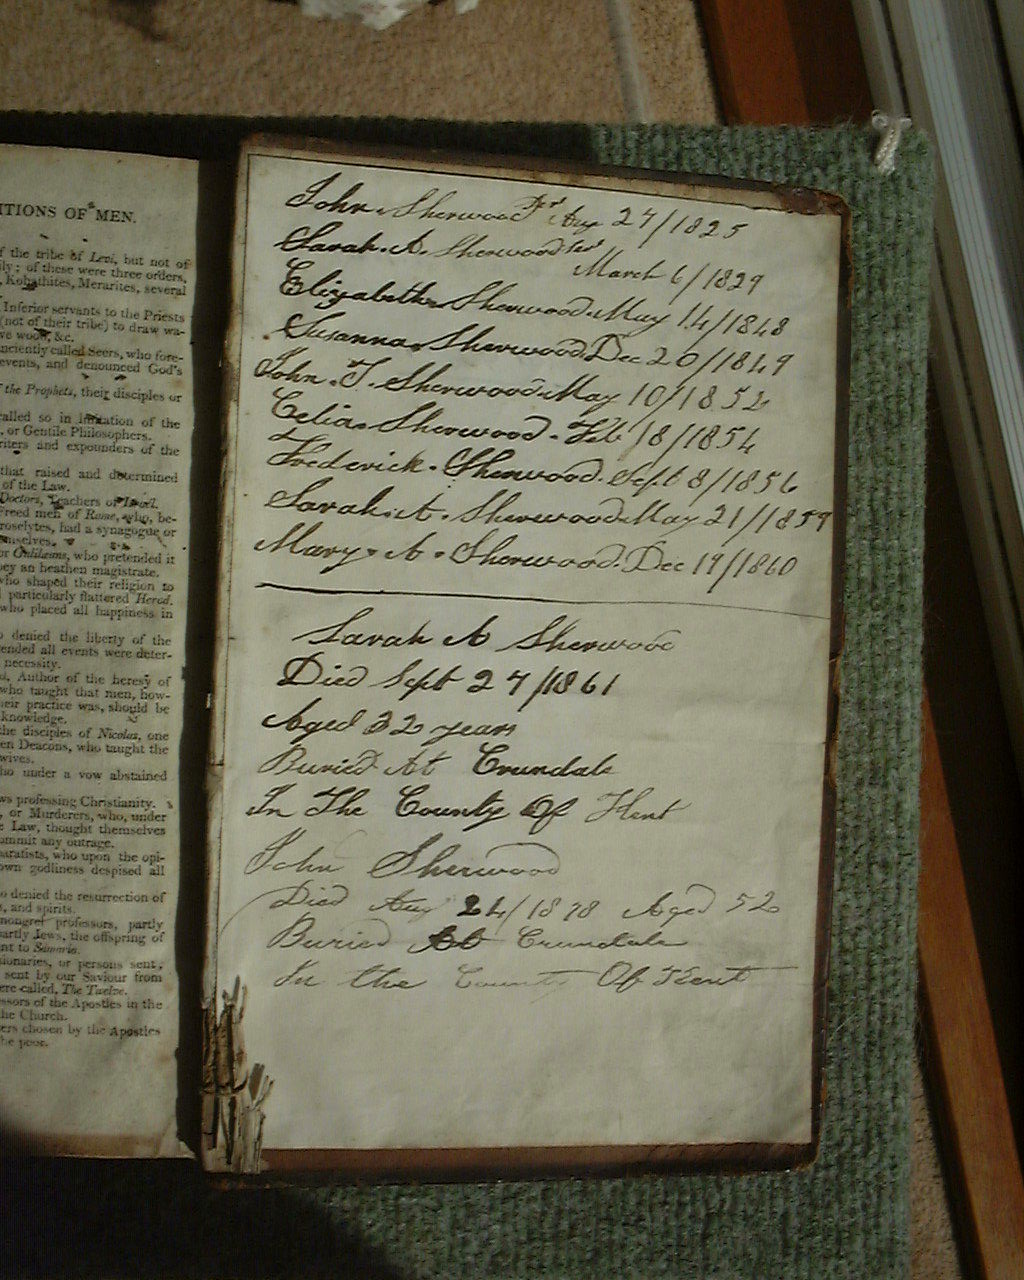 ITIONS OF MEN.
f the tribe of Levi, but not of
ily; of these were three orders,
Kohathites, Merarites, several
Inferior servants to the Priests
(not of their tribe) to draw wa-
ve wood, &c.
nciently called Seers, who fore-
events, and denounced God's
f the Prophets, their disciples or
alled so in imitation of the
, or Gentile Philosophers.
riters and expounders of the
that raised and determined
of the Law.
Doctors, Teachers of Israel.
Freed men of Rome, who, be-
roselytes, had a synagogue or
emselves.
or Galileans, who pretended it
bey an heathen magistrate.
who shaped their religion to
particularly flattered Herod.
who placed all happiness in
o denied the liberty of the
tended all events were deter-
necessity.
Author of the heresy of
who taught that men, how-
eir practice was, should be
knowledge.
the disciples of Nicolas, one
en Deacons, who taught the
wives.
ho under a vow abstained
ws professing Christianity.
, or Murderers, who, under
e Law, thought themselves
ommit any outrage.
paratists, who upon the opi-
own godliness despised all
o denied the resurrection of
, and spirits.
mongrel professors, partly
partly Jews, the offspring of
nt to Samaria.
sionaries, or persons sent,
sent by our Saviour from
ere called, The Twelve.
essors of the Apostles in the
the Church.
ers chosen by the Apostles
he poor.
John Sherwood Aug 27/1825
Sarah A. Sherwood
March 6/1829
Elizabeth Sherwood May 14/1848
Susanna Sherwood Dec 20/1849
John T. Sherwood May 10/1852
Celia Sherwood Feb 18/1854
Frederick Sherwood Sept 8/1856
Sarah A. Sherwood May 21/1859
Mary A Sherwood Dec 19/1860
Sarah A Sherwood
Died Sept 27/1861
Aged 32 years
Buried At Crundale
In The County Of Kent
John Sherwood
Died Aug 24/1878 Aged 52
Buried At Crundale
In the County Of Kent